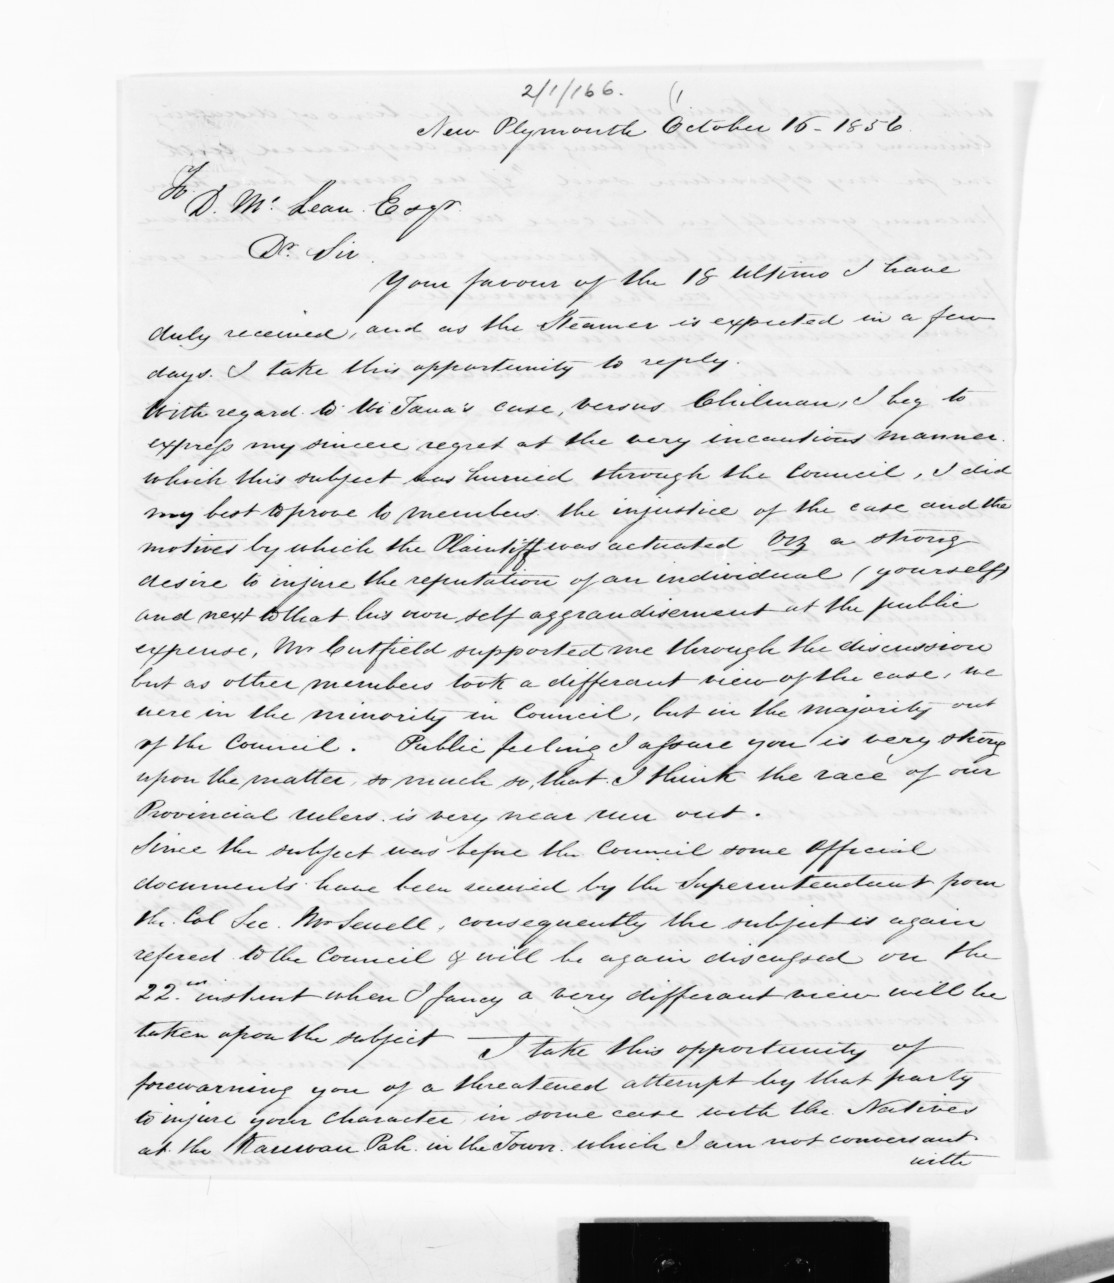 2/1/166. (1
New Plymouth October 16 - 1856
To
D. Mc. Lean. Esqr.
Dr. Sir.
Your favour of the 18 Ultimo I have
duly received, and as the Steamer is expected in a few
days. I take this opportunity to reply.
With regard to Wi Tana's case, versus Chilman, I beg to
express my sincere regret at the very incautious manner.
which this subject was hurried through the Council, I did
my best to prove to members. the injustice of the case and the
motives by which the Plaintiff was actuated Viz a strong
desire to injure the reputation of an individual (yourself)
and next to that his own self aggrandisement at the public
expense, Mr Cutfield supported me through the discussion
but as other members took a differant view of the case, we
were in the minority in Council, but in the majority out
of the Council. Public feeling I assure you is very strong
upon the matter, so much so, that I think the race of our
Provincial rulers. is very near run out.
Since the subject was before the Council some Official
documents have been received by the Superintendant from
the. Col Sec. Mr Sewell, consequently the subject is again
refered to the Council & will be again discussed on the
22.nd instant when I fancy a very differant view will be
taken upon the subject — I take this opportunity of
forewarning you of a threatened attempt by that party
to injure your character in some case with the Natives
at the Kawau Pah. in the Town. which I am not conversant
with